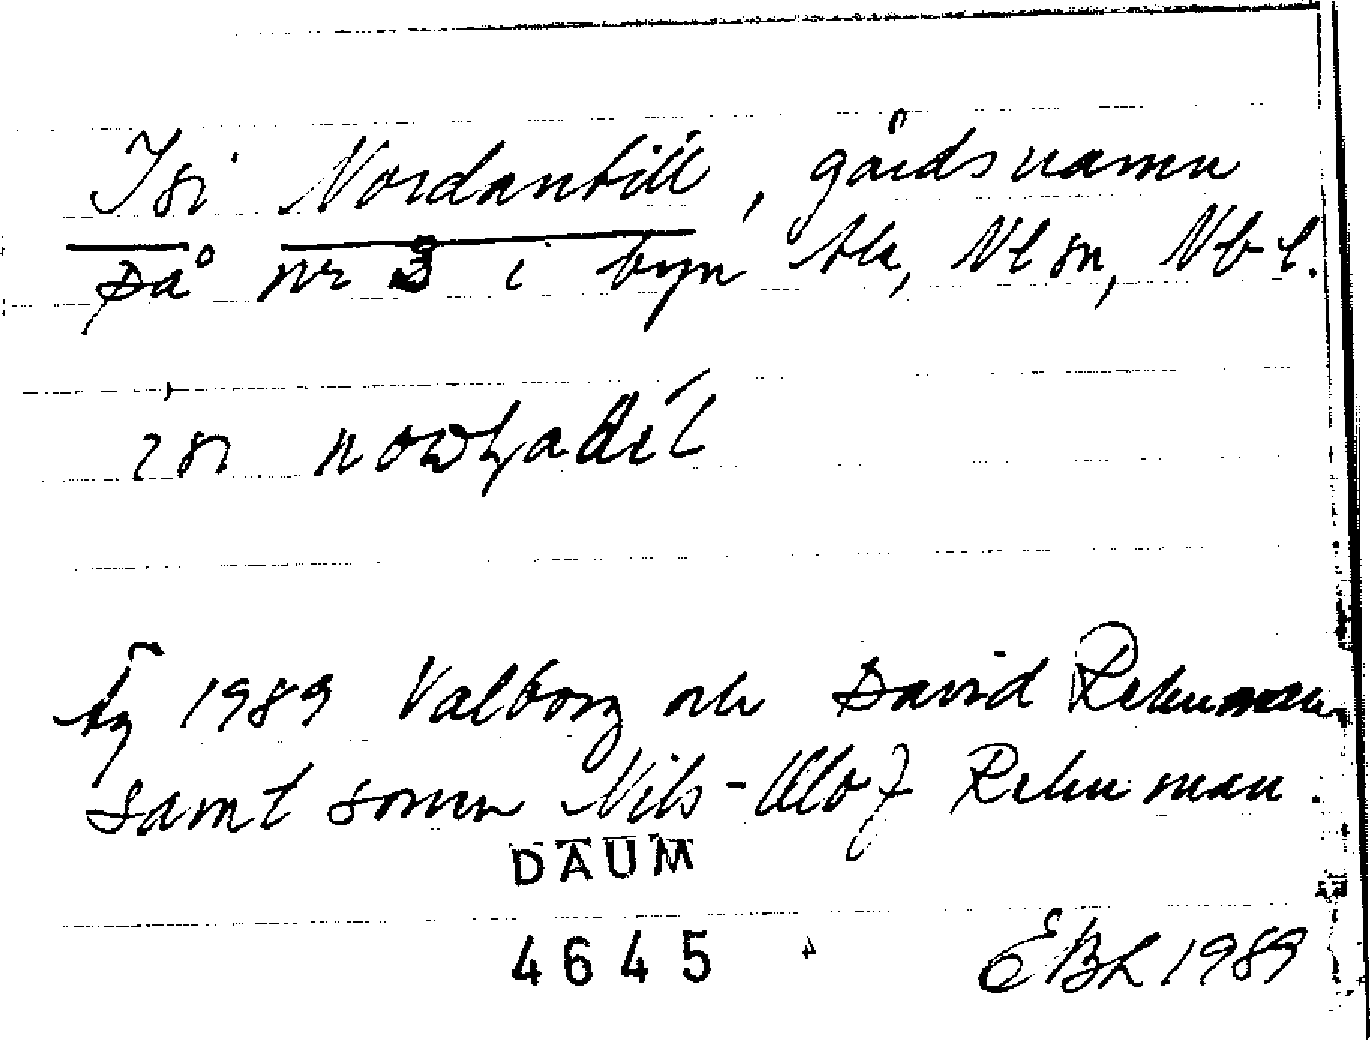 Isi Nordantill, gårdsnamn
på nr 3 i byn Åk, Nlsn, Vb l.
isi
Äg 1989 Valborg och David Rehnman
samt sonen Nils-Olof Rehnman.
DAUM
4645
EBL 1989